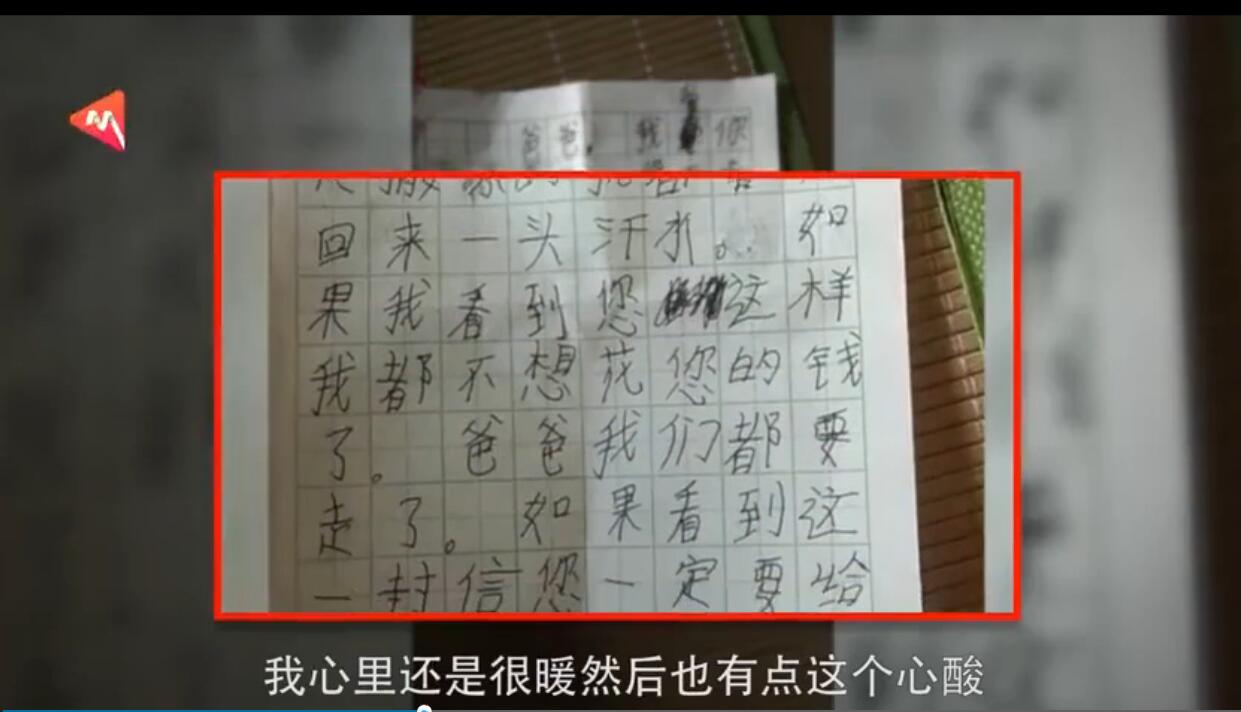 爸爸,我你
回来一头汗水。如
果我看到您这样
我都不想花您的钱
了。 爸爸我们都要
走了。 如果看到这
一封信您一定要给
我心里还是很暖然后也有点这个心酸